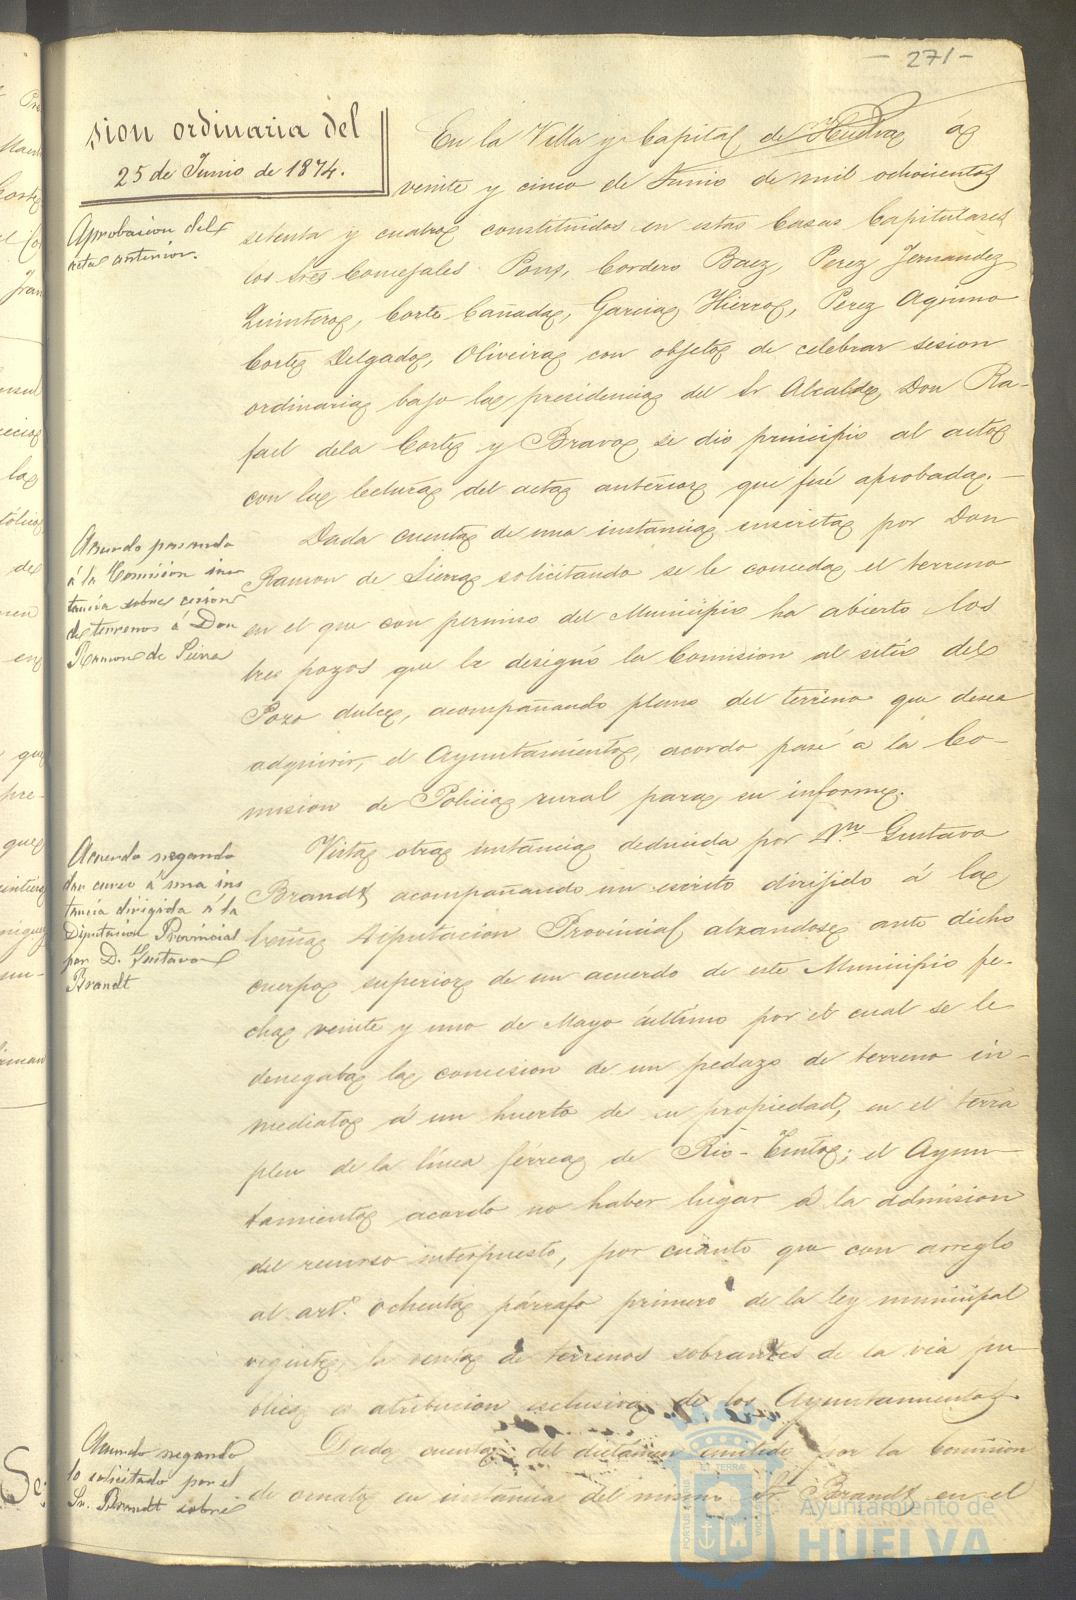 - 271 -
sion ordinaria del
25 de Junio de 1874.
En la Villa y Capital de Huelva á
veinte y cinco de Junio de mil ochocientos
Aprobacion del
acta anterior.
setenta y cuatro constituidos en estas Casas Capitulares
los Sres Concejales Pons, Cordero Baez, Perez Fernandez
Quintero, Corte Cañada, Garcia Hierro, Perez Aquino
Corte Delgado, Oliveira con objeto de celebrar sesion
ordinaria bajo la presidencia del Sr Alcalde, Don Ra-
fael dela Corte y Bravo se dio principio al acto
con la lectura del acta anterior que fué aprobada.
Acuerdo pasando
á la Comision ins
tancia sobre cesion
de terrenos á Don
Ramon de Sierra
Dada cuenta de una instancia suscrita por Don
Ramon de Sierra solicitando se le conceda el terreno
en el que con permiso del Municipio ha abierto los
tres pozos que le designó la Comision al sitio del
Pozo dulce, acompañando plano del terreno que desea
adquirir, el Ayuntamiento, acordo pase á la Co-
mision de Policia rural para su informe.
Acuerdo negando
dar curso á una ins
tancia dirigida á la
Diputacion Provincial
por D. Gustavo
Brandt
Vista otra instancia deducida por Mr Gustavo
Brandt acompañando un escrito dirijido á la
Diputacion Provincial alzandose ante dicho
cuerpo superior de un acuerdo de este Municipio fe-
cha veinte y uno de Mayo último por el cual se le
denegaba la concesion de un pedazo de terreno in-
mediato á un huerto de su propiedad, en el terra
plen de la línea férrea de Rio-Tinto; el Ayun-
tamiento acordo no haber lugar á la admision
del recurso interpuesto, por cuanto que con arreglo
al art.º ochenta párrafo primero de la ley municipal
vigente, la venta de terrenos sobrantes de la via pu
blica es atribucion esclusiva de los Ayuntamientos
Acuerdo negando
lo solicitado por el
Sr. Brandt sobre
Dada cuenta del dictámen emitido por la Comision
de ornato en instancia del mismo Sr Brandt en el
Ayuntamiento de
HUELVA